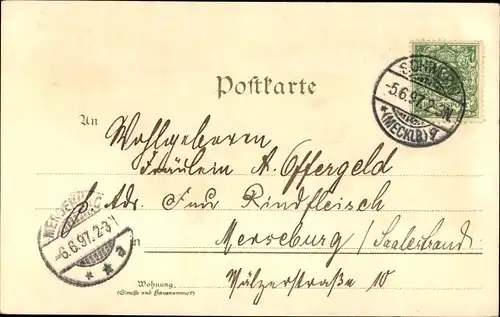 SCHWERIN
-5.6.97. 2-3N
*(MECKLB.)g
Postkarte
An Wohlgeboren
Fräulein A. Offergeld
p. Adr. Frau Rindfleisch
MERSEBURG
-6.6.97. 2-3N
* * a
in Merseburg / Saalestrand
Wälzerstraße 10
Wohnung
(Straße und Hausnummer)